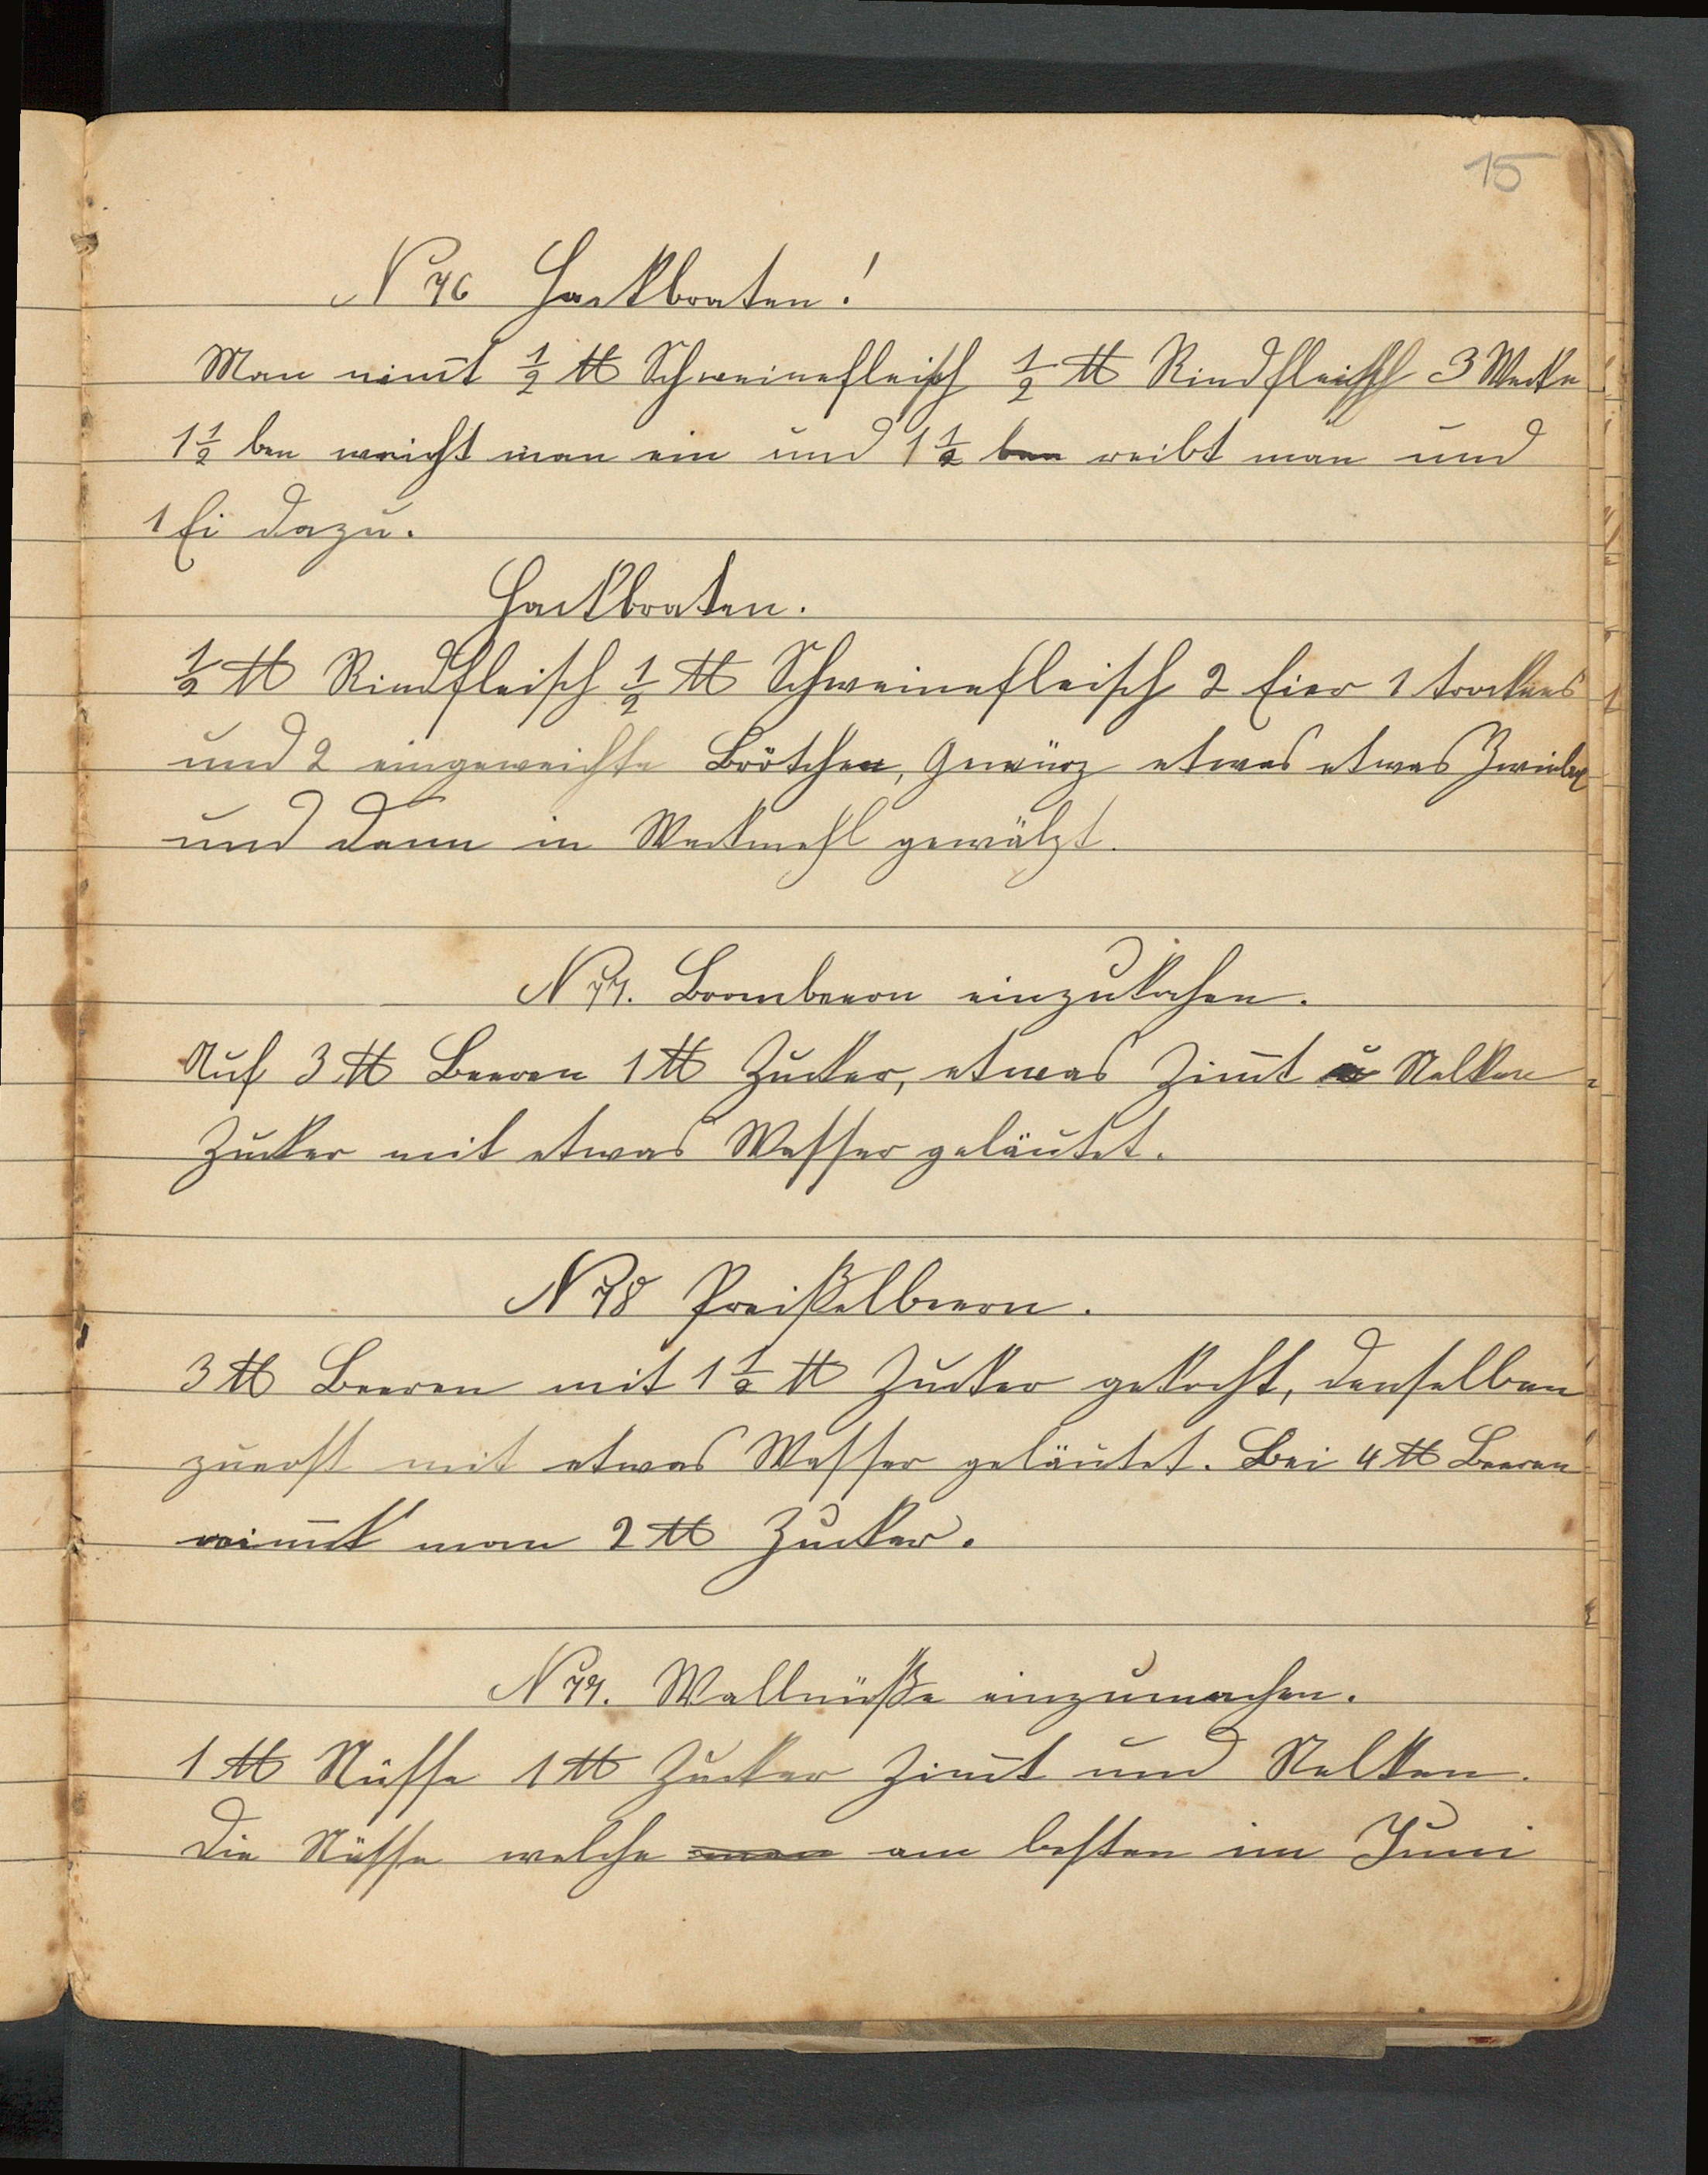 15
N 76 Hackbraten!
Man nim̄t ½ ℔ Schweinefleisch ½ ℔ Rindfleisch 3 Wecke
1½ ben weicht man ein und 1½ ben reibt man und
1 Ei dazu.
Hackbraten.
½ ℔ Rindfleisch ½ ℔ Schweinefleisch 2 Eier 1 trockenes
und 2 eingeweichte Brötchen, Gewürz etwas etwas Zwiebel
und dann in Weckmehl gewälzt.
N 77. Brombeern einzukochen.
Auf 3 ℔ Beeren 1 ℔ Zucker, etwas Zim̄t u Nelken
Zucker mit etwas Wasser geläutet.
N 78 Preißelbeern.
3 ℔ Beeren mit 1½ ℔ Zucker gekocht, denselben
zuerst mit etwas Wasser geläutet. Bei 4 ℔ Beeren
nim̄t man 2 ℔ Zucker.
N 79. Wallnüße einzumachen.
1 ℔ Nüsse 1 ℔ Zucker Zim̄t und Nelken.
Die Nüsse welche man am besten im Juni